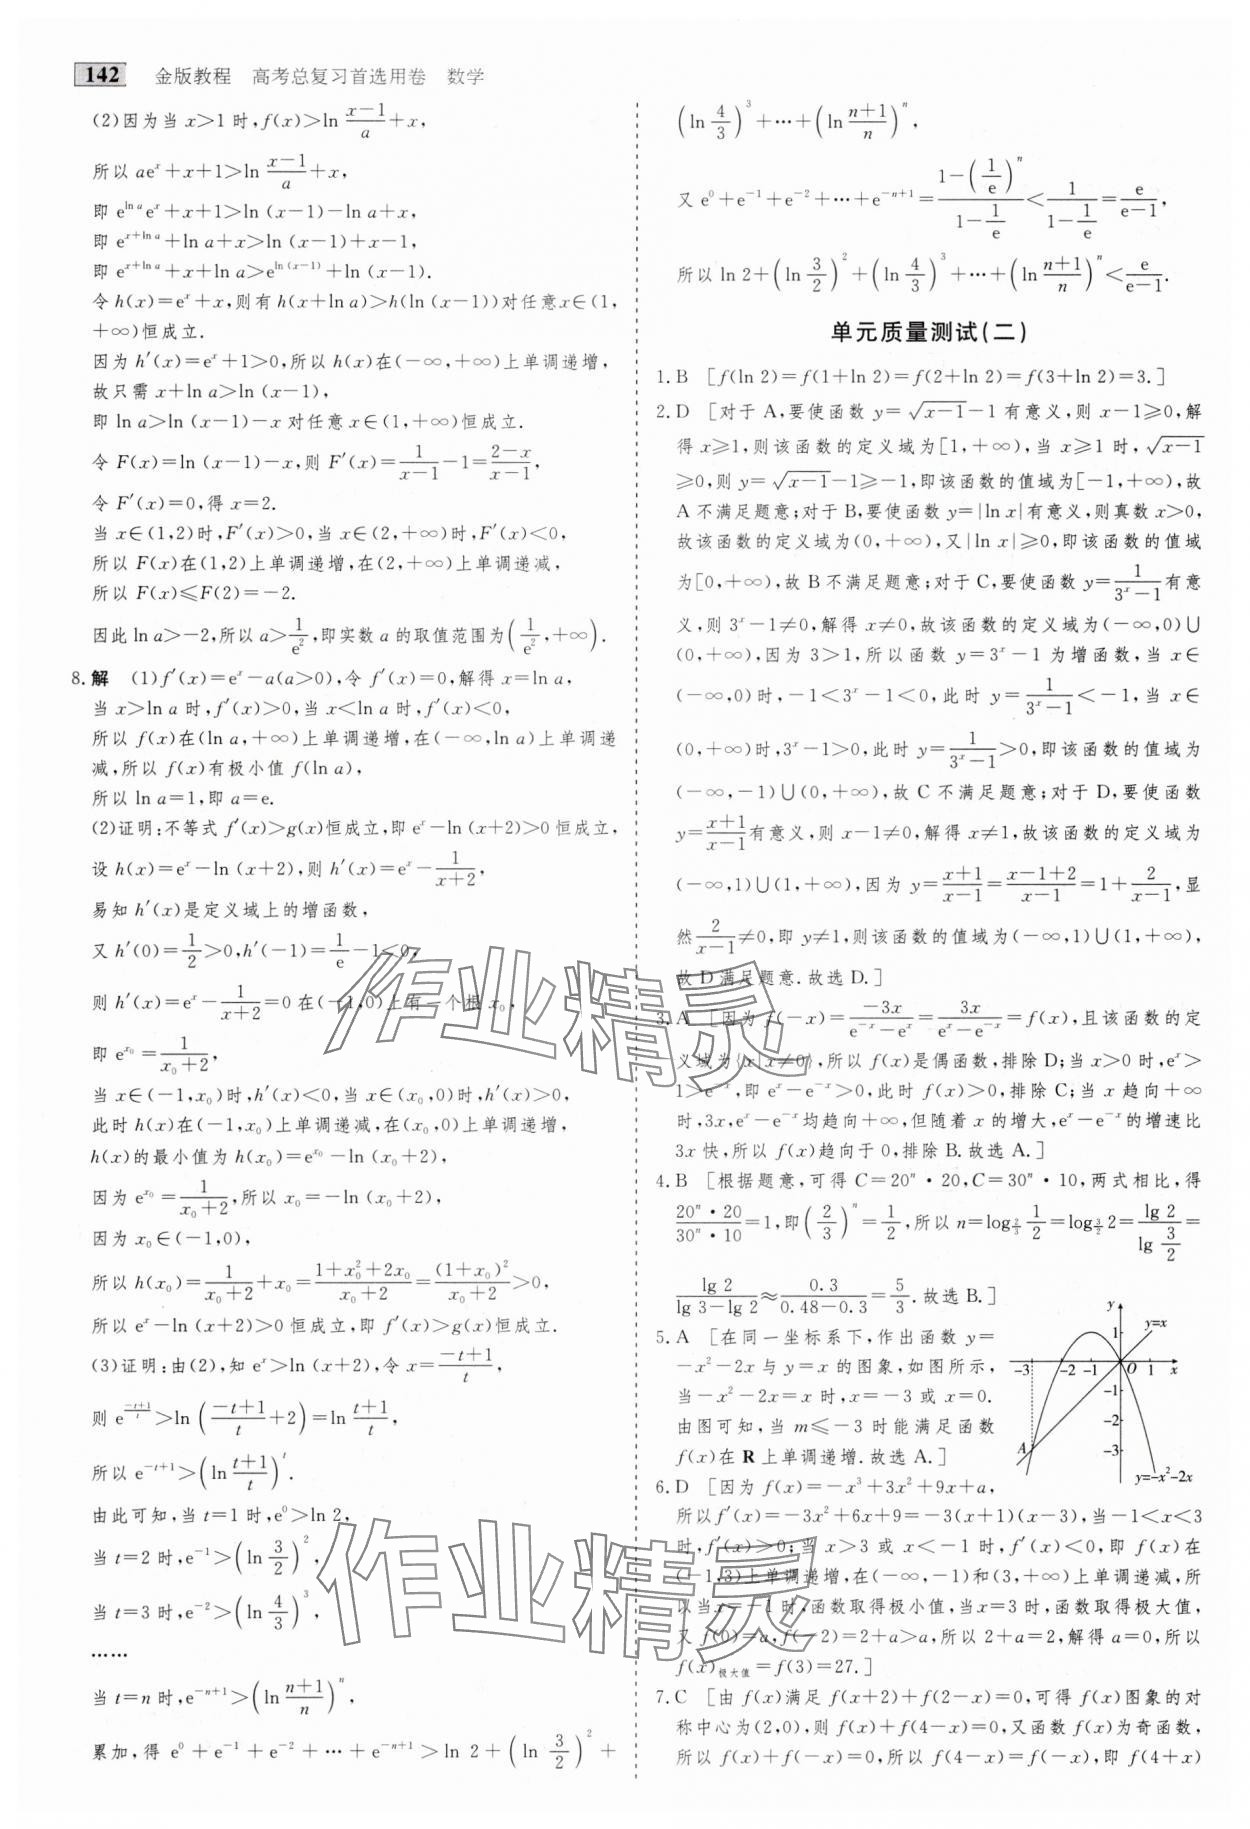 142 金版教程 高考总复习首选用卷 数学
(2)因为当 x>1 时,f(x)>ln (x-1)/a +x,
所以 ae^x+x+1>ln (x-1)/a +x,
即 e^(ln a)e^x+x+1>ln (x-1)-ln a+x,
即 e^(x+ln a)+ln a+x>ln (x-1)+x-1,
即 e^(x+ln a)+x+ln a>e^(ln (x-1))+ln (x-1).
令 h(x)=e^x+x,则有 h(x+ln a)>h(ln (x-1))对任意x∈(1,
+∞)恒成立.
因为 h′(x)=e^x+1>0,所以 h(x)在(-∞,+∞)上单调递增,
故只需 x+ln a>ln (x-1),
即 ln a>ln (x-1)-x 对任意 x∈(1,+∞)恒成立.
令 F(x)=ln (x-1)-x,则 F′(x)=1/(x-1)-1=(2-x)/(x-1),
令 F′(x)=0,得 x=2.
当 x∈(1,2)时,F′(x)>0,当 x∈(2,+∞)时,F′(x)<0,
所以 F(x)在(1,2)上单调递增,在(2,+∞)上单调递减,
所以 F(x)≤F(2)=-2.
因此 ln a>-2,所以 a>1/e²,即实数 a 的取值范围为(1/e²,+∞).
8. 解 (1)f′(x)=e^x-a(a>0),令 f′(x)=0,解得 x=ln a,
当 x>ln a 时,f′(x)>0,当 x<ln a 时,f′(x)<0,
所以 f(x)在(ln a,+∞)上单调递增,在(-∞,ln a)上单调递
减,所以 f(x)有极小值 f(ln a),
所以 ln a=1,即 a=e.
(2)证明:不等式 f′(x)>g(x)恒成立,即 e^x-ln (x+2)>0 恒成立,
设 h(x)=e^x-ln (x+2),则 h′(x)=e^x-1/(x+2),
易知 h′(x)是定义域上的增函数,
又 h′(0)=1/2>0,h′(-1)=1/e-1<0,
则 h′(x)=e^x-1/(x+2)=0 在(-1,0)上有一个根 x₀,
即 e^(x₀)=1/(x₀+2),
当 x∈(-1,x₀)时,h′(x)<0,当 x∈(x₀,0)时,h′(x)>0,
此时 h(x)在(-1,x₀)上单调递减,在(x₀,0)上单调递增,
h(x)的最小值为 h(x₀)=e^(x₀)-ln (x₀+2),
因为 e^(x₀)=1/(x₀+2),所以 x₀=-ln (x₀+2),
因为 x₀∈(-1,0),
所以 h(x₀)=1/(x₀+2)+x₀=(1+x₀²+2x₀)/(x₀+2)=(1+x₀)²/(x₀+2)>0,
所以 e^x-ln (x+2)>0 恒成立,即 f′(x)>g(x)恒成立.
(3)证明:由(2),知 e^x>ln (x+2),令 x=(-t+1)/t,
则 e^((-t+1)/t)>ln ((-t+1)/t+2)=ln (t+1)/t,
所以 e^(-t+1)>(ln (t+1)/t)^t.
由此可知,当 t=1 时,e⁰>ln 2,
当 t=2 时,e⁻¹>(ln 3/2)²,
当 t=3 时,e⁻²>(ln 4/3)³,
……
当 t=n 时,e^(-n+1)>(ln (n+1)/n)^n,
累加,得 e⁰+e⁻¹+e⁻²+…+e^(-n+1)>ln 2+(ln 3/2)²+
(ln 4/3)³+…+(ln (n+1)/n)^n,
又 e⁰+e⁻¹+e⁻²+…+e^(-n+1)=(1-(1/e)^n)/(1-1/e)<1/(1-1/e)=e/(e-1),
所以 ln 2+(ln 3/2)²+(ln 4/3)³+…+(ln (n+1)/n)^n<e/(e-1).
单元质量测试(二)
1. B [f(ln 2)=f(1+ln 2)=f(2+ln 2)=f(3+ln 2)=3.]
2. D [对于 A,要使函数 y=√(x-1)-1 有意义,则 x-1≥0,解
得 x≥1,则该函数的定义域为[1,+∞),当 x≥1 时,√(x-1)
≥0,则 y=√(x-1)-1≥-1,即该函数的值域为[-1,+∞),故
A 不满足题意;对于 B,要使函数 y=|ln x|有意义,则真数 x>0,
故该函数的定义域为(0,+∞),又|ln x|≥0,即该函数的值域
为[0,+∞),故 B 不满足题意;对于 C,要使函数 y=1/(3^x-1)有意
义,则 3^x-1≠0,解得 x≠0,故该函数的定义域为(-∞,0)∪
(0,+∞),因为 3>1,所以函数 y=3^x-1 为增函数,当 x∈
(-∞,0)时,-1<3^x-1<0,此时 y=1/(3^x-1)<-1,当 x∈
(0,+∞)时,3^x-1>0,此时 y=1/(3^x-1)>0,即该函数的值域为
(-∞,-1)∪(0,+∞),故 C 不满足题意;对于 D,要使函数
y=(x+1)/(x-1)有意义,则 x-1≠0,解得 x≠1,故该函数的定义域为
(-∞,1)∪(1,+∞),因为 y=(x+1)/(x-1)=(x-1+2)/(x-1)=1+2/(x-1),显
然2/(x-1)≠0,即 y≠1,则该函数的值域为(-∞,1)∪(1,+∞),
故 D 满足题意.故选 D.]
3. A [因为 f(-x)=-3x/(e^(-x)-e^x)=3x/(e^x-e^(-x))=f(x),且该函数的定
义域为{x|x≠0},所以 f(x)是偶函数,排除 D;当 x>0 时,e^x>
1>e^(-x),即 e^x-e^(-x)>0,此时 f(x)>0,排除 C;当 x 趋向+∞
时,3x,e^x-e^(-x)均趋向+∞,但随着 x 的增大,e^x-e^(-x)的增速比
3x 快,所以 f(x)趋向于 0,排除 B.故选 A.]
4. B [根据题意,可得 C=20^n·20,C=30^n·10,两式相比,得
(20^n·20)/(30^n·10)=1,即(2/3)^n=1/2,所以 n=log_(2/3) 1/2=log_(3/2) 2=lg 2/lg (3/2)=
lg 2/(lg 3-lg 2)≈0.3/(0.48-0.3)=5/3.故选 B.]
5. A [在同一坐标系下,作出函数 y=
-x²-2x 与 y=x 的图象,如图所示,
当-x²-2x=x 时,x=-3 或 x=0.
由图可知,当 m≤-3 时能满足函数
f(x)在 R 上单调递增.故选 A.]
y 1 y=x
-3 -2 -1 O 1 x
-1
-2
A -3
y=-x²-2x
6. D [因为 f(x)=-x³+3x²+9x+a,
所以f′(x)=-3x²+6x+9=-3(x+1)(x-3),当-1<x<3
时,f′(x)>0;当 x>3 或 x<-1 时,f′(x)<0,即 f(x)在
(-1,3)上单调递增,在(-∞,-1)和(3,+∞)上单调递减,所
以当x=-1 时,函数取得极小值,当x=3 时,函数取得极大值,
又 f(0)=a,f(-2)=2+a>a,所以 2+a=2,解得 a=0,所以
f(x)极大值=f(3)=27.]
7. C [由 f(x)满足 f(x+2)+f(2-x)=0,可得 f(x)图象的对
称中心为(2,0),则 f(x)+f(4-x)=0,又函数 f(x)为奇函数,
所以 f(x)+f(-x)=0,所以 f(4-x)=f(-x),即 f(4+x)
作业精灵
作业精灵